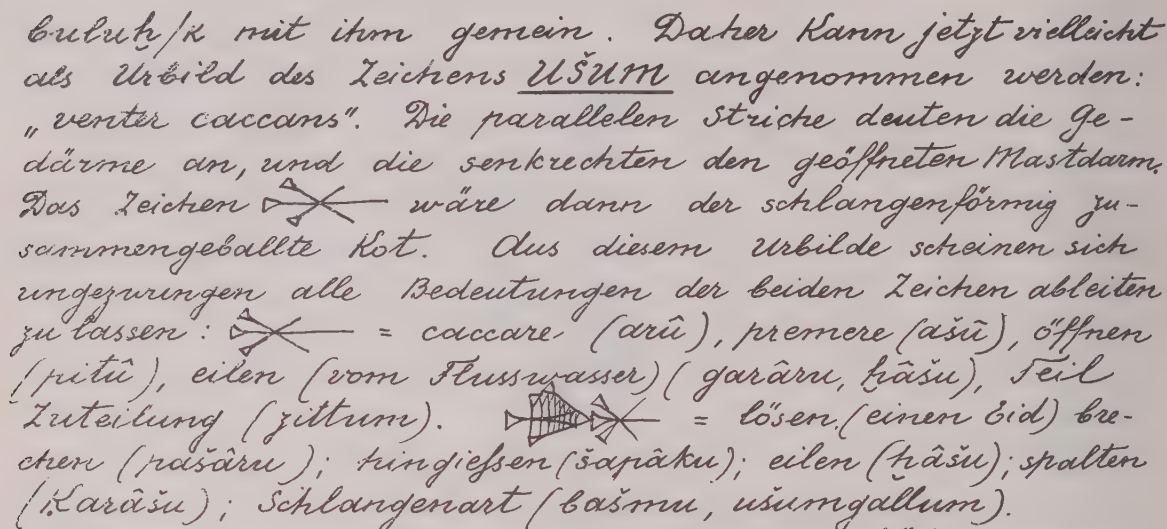 buluḫ/k mit ihm gemein. Daher kann jetzt vielleicht
als Urbild des Zeichens UŠUM angenommen werden:
„venter caccans“. Die parallelen Striche deuten die Ge-
därme an, und die senkrechten den geöffneten Mastdarm.
Das Zeichen wäre dann der schlangenförmig zu-
sammengeballte Kot. Aus diesem Urbilde scheinen sich
ungezwungen alle Bedeutungen der beiden Zeichen ableiten
zu lassen: = caccare (arû), premere (ašû), öffnen
(pitû), eilen (vom Flusswasser) (garâru, ḫâšu), Teil
Zuteilung (zittum). = lösen, (einen Eid) bre-
chen (pašâru); hingießen (šapâku); eilen (ḫâšu); spalten
(Karâšu); Schlangenart (bašmu, ušumgallum).